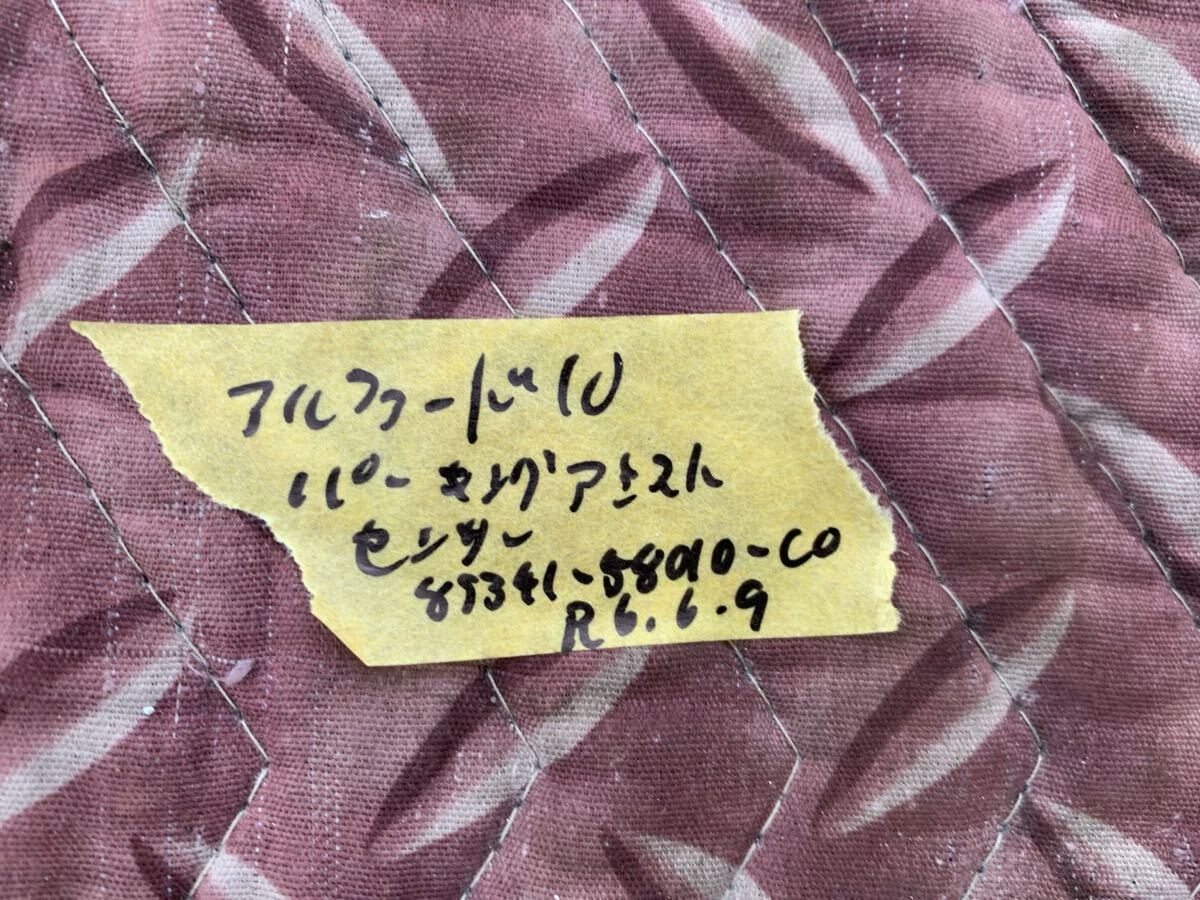 アルファード10
パーキングアシスト
センサー
89341-58010-C0
R6.6.9